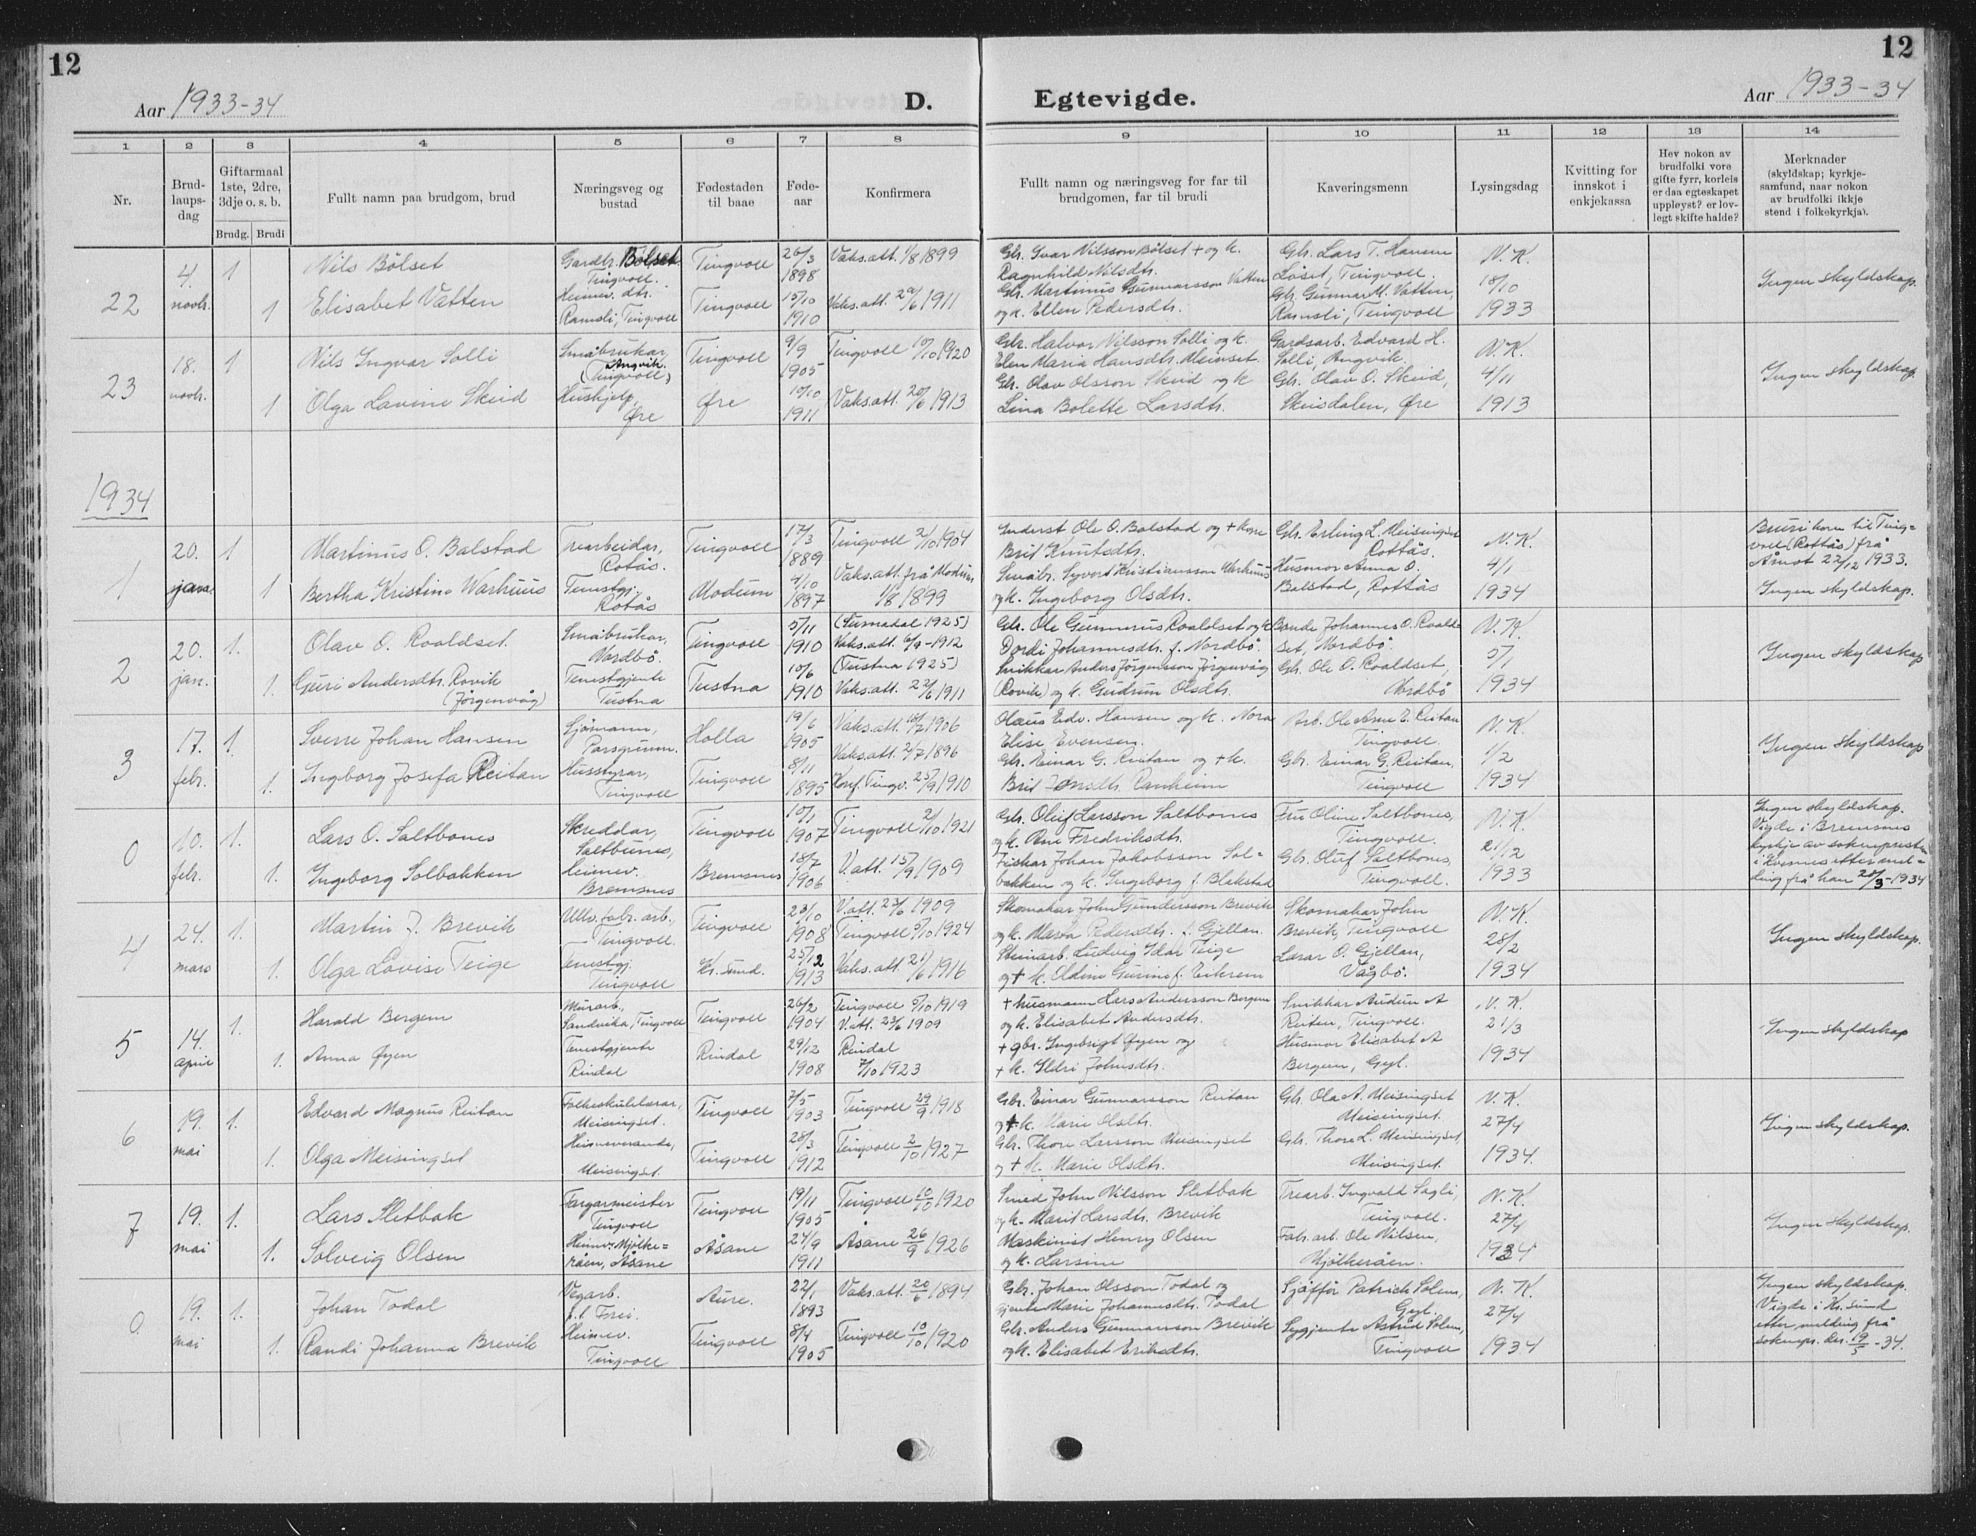 12
12
Aar 1933-34
D.
Egtevigde.
Aar 1933-34
1 2 3 4 5 6 7 8 9 10 11 12 13 14
Nr.
Brud-
laups-
dag
Giftarmaal
1ste, 2dre,
3dje o. s. b.
Brudg. Brudi
Fullt namn paa brudgom, brud
Næringsveg og
bustad
Fødestaden
til baae
Føde-
aar
Konfirmera
Fullt namn og næringsveg for far til
brudgomen, far til brudi
Kaveringsmenn
Lysingsdag
Kvitting for
innskot i
enkjekassa
Hev nokon av
brudfolki vore
gifte fyrr, korleis
er daa egteskapet
uppløyst? er lov-
legt skifte halde?
Merknader
(skyldskap; kyrkje-
samfund, naar nokon
av brudfolki ikkje
stend i folkekyrkja).
22
4.
novbr.
1
Nils Bølset
Gardbr. Bølset
Tingvoll.
Tingvoll
26/3
1898
Vaks.att. 1/8 1899
Gbr. Ivar Nilsson Bølset + og k.
Ragnhild Nilsdtr.
Gbr. Lars T. Hansen
Løset, Tingvoll.
N.K.
18/10
1933
Ingen skyldskap.
1
Elisabet Vatten
Heimev. dtr.
Ramsli, Tingvoll
Tingvoll
15/10
1910
Vaks.att. 1911
Gbr. Martinus Gunnarsson Vatten
og k. Ellen Pedersdtr.
Gbr. Gunnar M. Vatten,
Ramsli, Tingvoll
23
18.
novbr.
1
Nils Ingvar Solli
Småbrukar,
Angvik.
(Tingvoll)
Tingvoll
9/9
1905
Tingvoll 10/10 1920
Gbr. Halvor Nilsson Solli og k.
Elen Maria Hansdtr. Meinset.
Gardsarb. Edvard H.
Solli, Angvik.
N.K.
4/11
1913
Ingen skyldskap.
1
Olga Lavine Skeid
Hushjelp,
Øre
Øre
10/10
1911
Vaks.att. 20/6 1913
Gbr. Olav Olsson Skeid og k
Lina Bolette Larsdtr.
Gbr. Olav O. Skeid,
Skeisdalen, Øre
1934
1
20.
januar
1
Martinus O. Balstad
Trearbeidar,
Rotås.
Tingvoll
17/3
1889
Tingvoll 2/10 1904
Inderst. Ole O. Balstad og + kone
Brit Knutsdtr.
Gbr. Erling L. Meisingset
Rottås.
N.K.
4/1
1934
til Ting-
voll (Rottås) frå
Åmot 22/12 1933.
Ingen skyldskap.
1
Bertha Kristine Warhuus
Tenestgj.
Rotås
Modum
4/10
1897
Vaks.att. frå Modum
1/8 1899
Småbr. Syvert Kristiansson Warhuus
og k. Ingeborg Olsdtr.
Husmor Anna O.
Balstad, Rottås
2
20.
jan.
1.
Olav O. Roaldset.
Småbrukar,
Nordbø.
Tingvoll
5/11
1910
(Surnadal 1925)
Vaks.att. 6/9-1912
Gbr. Ole Gunnerus Roaldset og k
Dordi Johannesdtr. f. Nordbø.
Bonde Johannes O. Roald-
set, Nordbø.
N.K.
5/1
1934
Ingen skyldskap
1.
Guri Andersdtr. Rovik
(Jørgenvåg)
Tenestgjente
Tustna
Tustna
10/6
1910
(Tustna 1925)
Vaks.att. 22/6 1911
Snikkar Anders Jørgensson Jørgenvåg
(Rovik) og k. Gudrun Olsdtr.
Gbr. Ole O. Roaldset,
Nordbø
3
17.
febr.
1.
Sverre Johan Hansen
Sjømann,
Porsgrunn.
Holla
19/6
1905
Vaks.att. 1906
Olaus Edv. Hansen og k. Nora
Elise Evensen.
Arb. Ole Arne E. Reitan
Tingvoll
N.K.
1/2
1934
Ingen skyldskap
1.
Ingeborg Josefa Reitan
Husstyrar,
Tingvoll
Tingvoll
8/11
1895
Vaks.att. 2/7 1896
Konf. Tingv. 25/9 1910
Gbr. Einar G. Reitan og + k.
Brit Jonsdtr. Ranheim
Gbr. Einar G. Reitan,
Tingvoll
0
10.
febr.
1.
Lars O. Saltbones
Skreddar,
Saltbunes,
Tingvoll
10/1
1907
Tingvoll 2/10 1921
Gbr. Oluf Larsson Saltbones
og k. Ane Fredriksdtr.
Fru Oline Saltbones,
Tingvoll.
N.K.
21/12
1933
Ingen skyldskap.
Vigde i Bremsnes
kyrkje av soknepresten
i Kvernes etter mel-
ding frå han 20/3-1934
1.
Ingeborg Solbakken
Heimev.
Bremsnes
Bremsnes
18/7
1906
V.att. 15/9 1909
Fiskar Johan Jakobsson Sol-
bakken og k. Ingeborg f. Blakstad
Gbr. Oluf Saltbones,
Tingvoll.
4
24.
mars
1.
Martin J. Brevik
Ullv.fabr.arb.,
Tingvoll.
Tingvoll
23/10
1908
V.att. 23/6 1909
Tingvoll 5/10 1924
Skomakar John Gundersson Brevik
og k. Maren Pedersdtr. f. Gjellan.
Skomakar John
Brevik, Tingvoll
N.K.
28/2
1934
Ingen skyldskap.
1.
Olga Lovise Teige
Tenestgj.
Tingvoll
Kr.sund.
25/12
1913
Vaks.att. 21/6 1916
Steinarb. Ludvig Idar Teige
og + k. Eldine Gurine f. Eikrem
Lærar O. Gjellan,
Vågbø.
5
14.
april
1.
Harald Bergem
Murarb.,
Sandvika, Tingvoll
Tingvoll
26/2
1904
Tingvoll 5/10 1919
V.att. 23/6 1909
+ husmann Lars Andersson Bergem
og k. Elisabet Andersdtr.
Snikkar Audun A
Reiten, Tingvoll.
N.K.
21/3
1934
Ingen skyldskap
1.
Anna Øyen
Tenestgjente
Rindal
Rindal
29/12
1908
Rindal
7/10 1923
+ gbr. Ingebrigt Øyen og
+ k. Ildri Johnsdtr.
Husmor Elisabet A
Bergem, Gyl.
6
19.
mai
1.
Edvard Magnus Reitan
Folkeskulelærar,
Meisingset.
Tingvoll
7/5
1903
Tingvoll 29/9 1918
Gbr. Einar Gunnarsson Reitan
og + k. Marie Olsdtr.
Gbr. Ola A. Meisingset
Meisingset.
N.K.
27/4
1934.
Ingen skyldskap.
1.
Olga Meisingset
Heimeverande,
Meisingset.
Tingvoll
28/3
1912
Tingvoll 2/10 1927
Gbr. Thore Larsson Meisingset
og + k. Marie Olsdtr.
Gbr. Thore L. Meisingset,
Meisingset.
7
19.
mai
1.
Lars Sletbak
Fargarmeister
Tingvoll
Tingvoll
19/11
1905
Tingvoll 10/10 1920
Smed John Nilsson Sletbak
og k. Marit Larsdtr. Brevik
Trearb. Ingvald Sagli,
Tingvoll.
N.K.
27/4
1934
Ingen skyldskap.
1.
Solveig Olsen
Heimev. Mjölke-
råen, Åsane
Åsane
24/9
1911
Åsane 26/9 1926
Maskinist Henry Olsen
og k. Larsine
Fab.arb. Ole Nilsen,
Mjölkeråen.
0
19.
mai
1.
Johan Todal
Vegarb.
p.t. Frei.
Aure.
22/1
1893
Vaks.att. 20/6 1894
Gbr. Johan Olsson Todal og
gjente Marie Johannesdtr. Todal
Sjåffør Patrick Solem,
Gyl.
N.K.
27/4
1934
Ingen skyldskap.
Vigde i Kr.sund
etter melding frå
soknepr. der. 19/5-34.
1.
Randi Johanna Brevik
Heimev.
Tingvoll
Tingvoll
8/4
1905
Tingvoll 10/10 1920
Gbr. Anders Gunnarsson Brevik
og k. Elisabet Eriksdtr.
Sygjente Astrid Solem,
Tingvoll